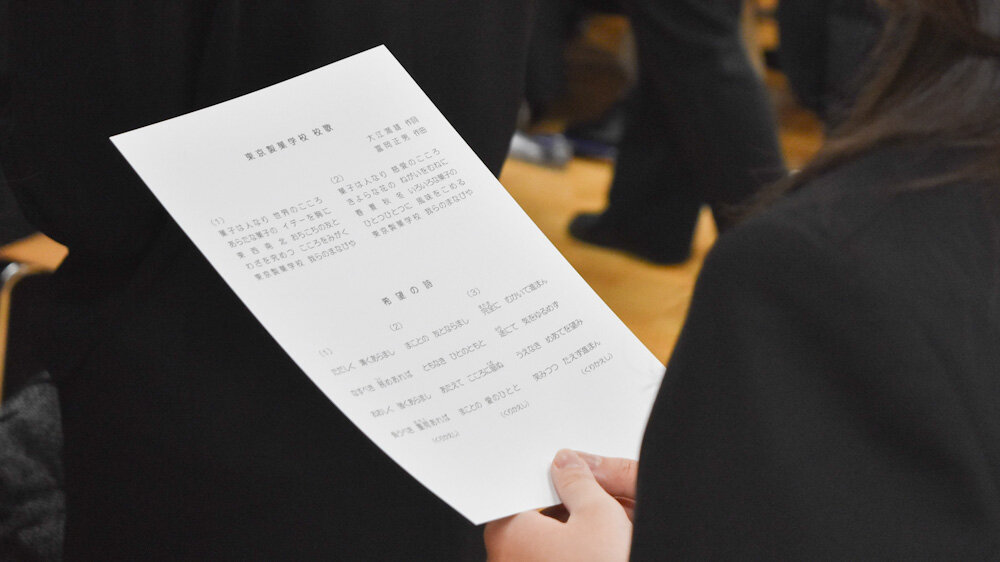 東京製菓学校 校歌
作詞
富岡正男 作曲
(1)
菓子は人なり 世界のこころ
あらたな菓子の イデーを胸に
東 西 南 北 おちこちの友と
わざを究めつ こころをみがく
東京製菓学校 我らのまなびや
(2)
菓子は人なり 慈愛のこころ
きよらな花の ねがいをむねに
春 夏 秋 冬 いろいろな菓子の
ひとつひとつに 風味をこめる
東京製菓学校 我らのまなびや
希望の詩
(1)
ただしく 清くあらまし
なすべき 務めあれば
おおしく 強くあらまし
負うべき 重荷あれば
(くりかえし)
(2)
まことの 友とならまし
ともなき ひとのともと
あたえて こころに
まことの 愛のひとと
(くりかえし)
(3)
むかいて進まん
にて 気をゆるめず
うえなき めあてを望み
笑みつつ たえず進まん
(くりかえし)